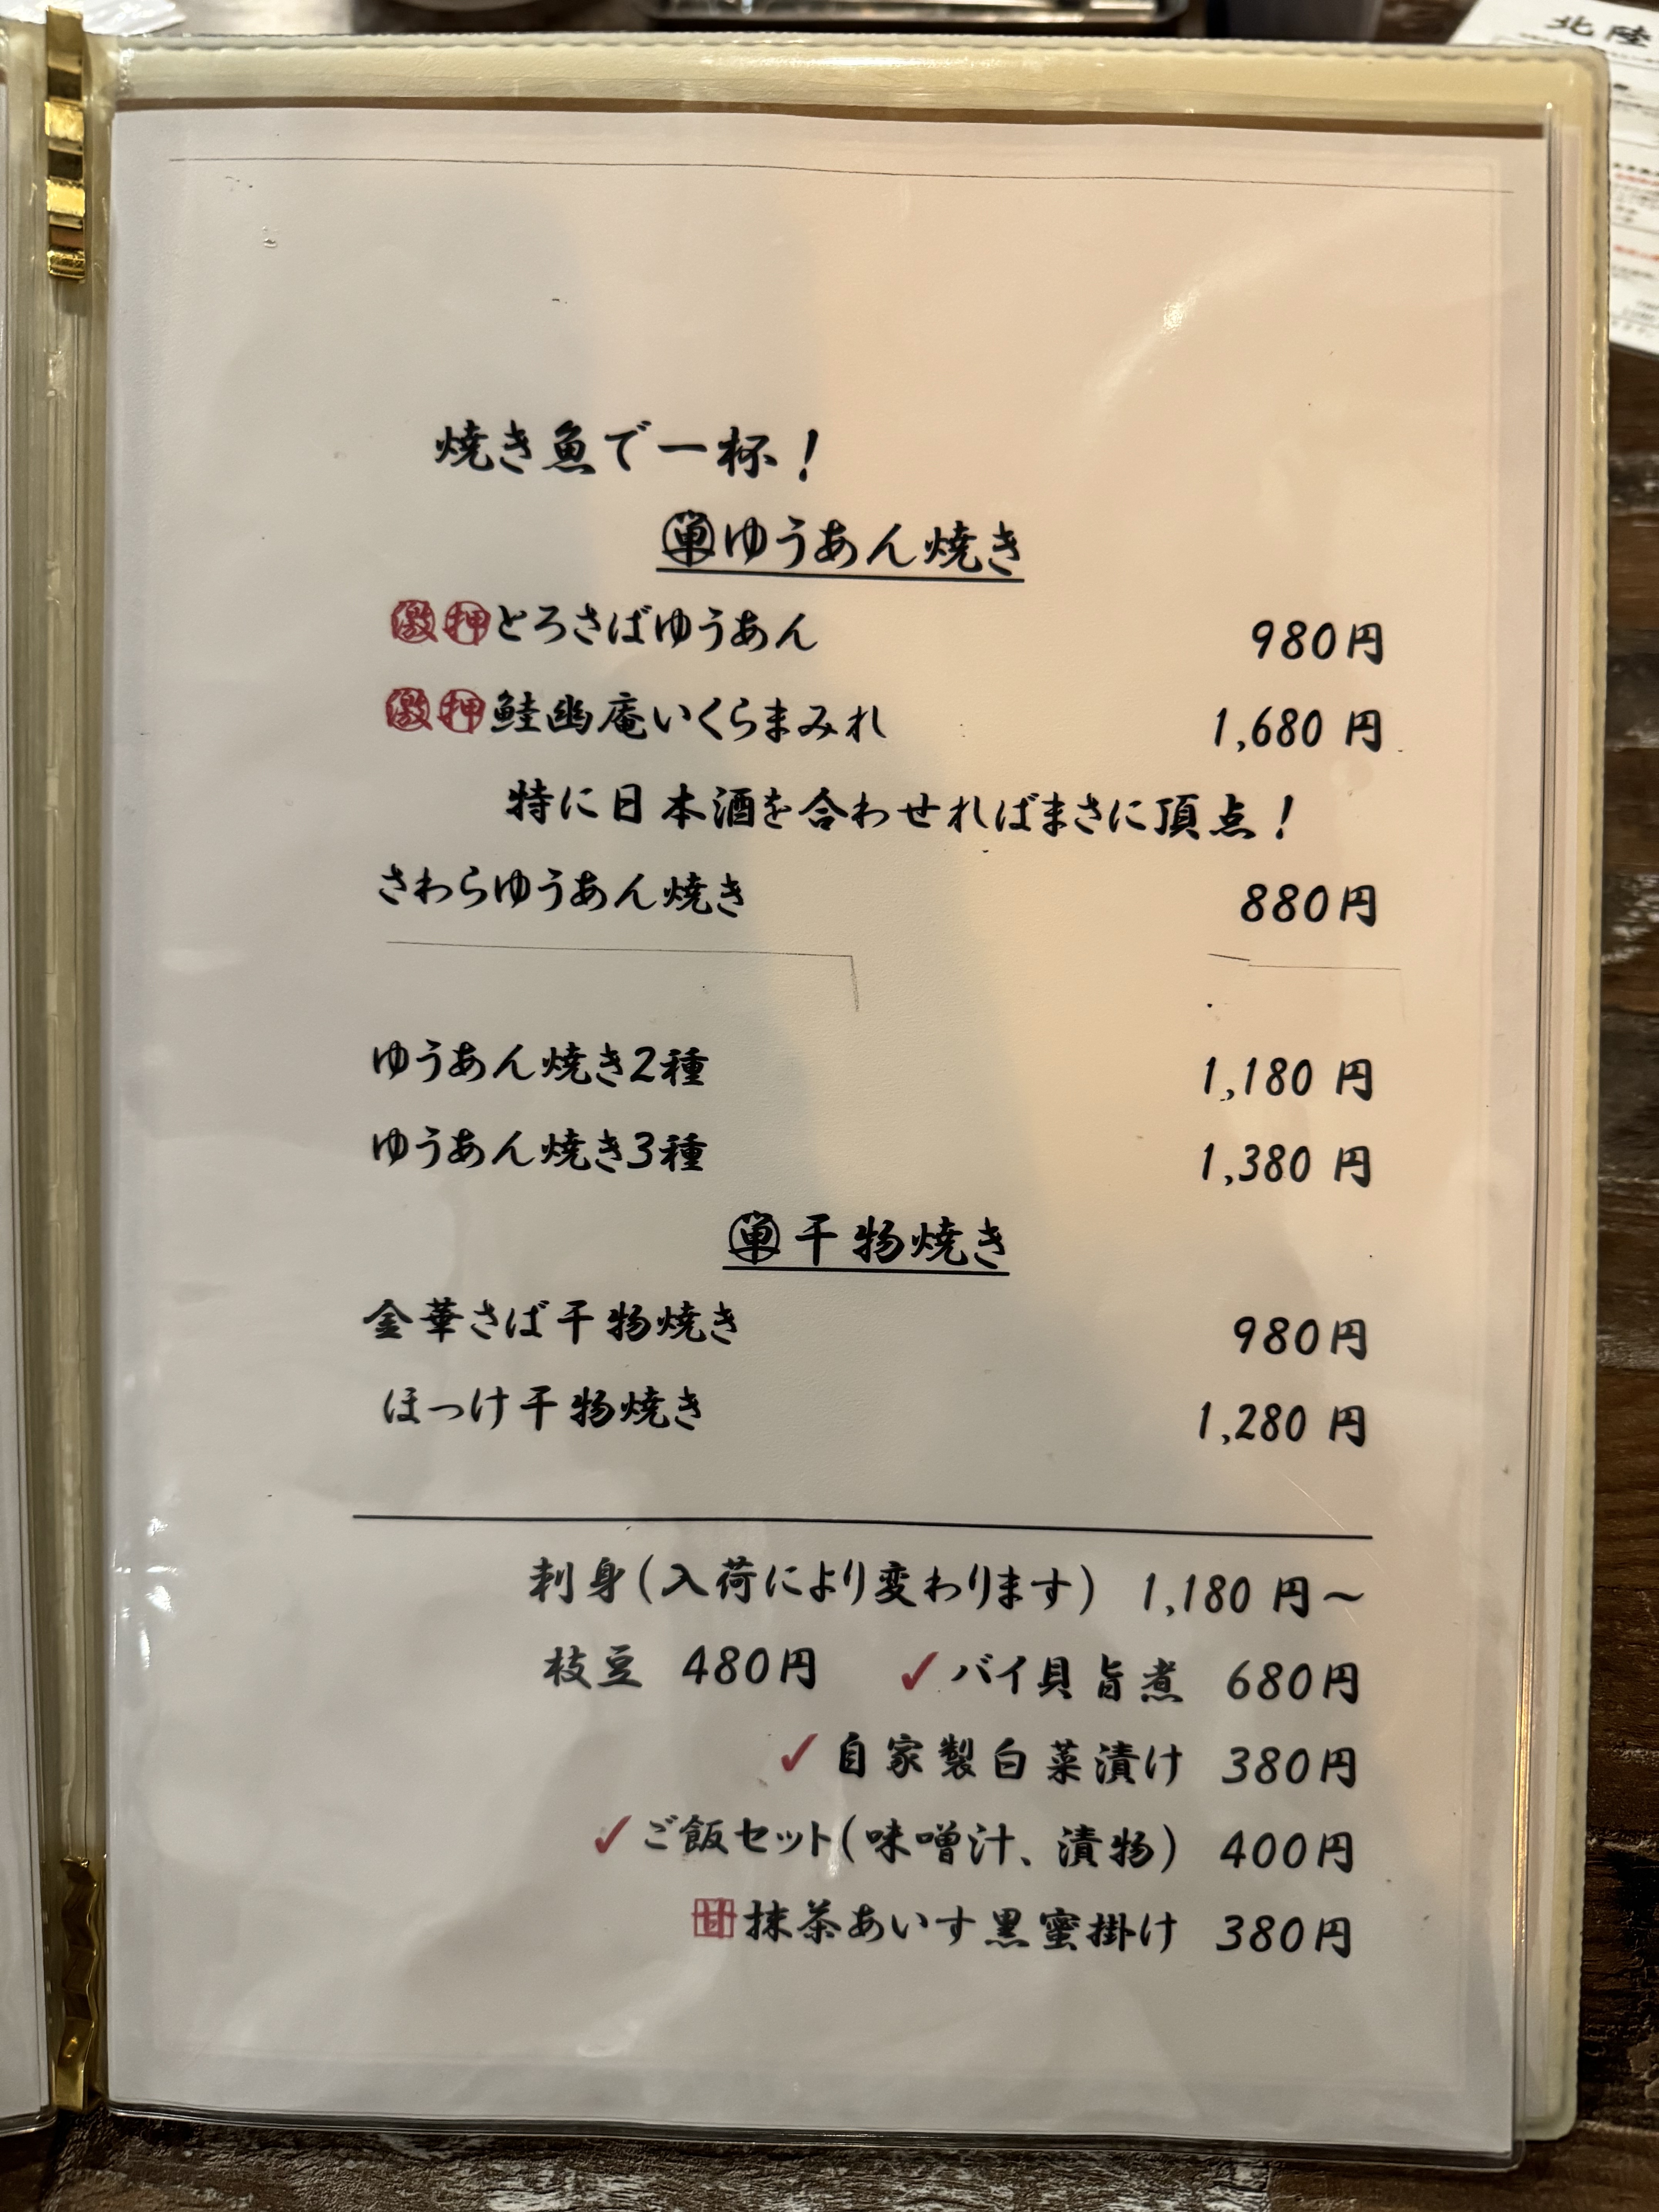 北陸
焼き魚で一杯！
単ゆうあん焼き
激押とろさばゆうあん 980円
激押鮭幽庵いくらまみれ 1,680円
特に日本酒を合わせればまさに頂点！
さわらゆうあん焼き 880円
ゆうあん焼き2種 1,180円
ゆうあん焼き3種 1,380円
単干物焼き
金華さば干物焼き 980円
ほっけ干物焼き 1,280円
刺身（入荷により変わります） 1,180円～
枝豆 480円 ✓バイ貝旨煮 680円
✓自家製白菜漬け 380円
✓ご飯セット（味噌汁、漬物） 400円
甘抹茶あいす黒蜜掛け 380円